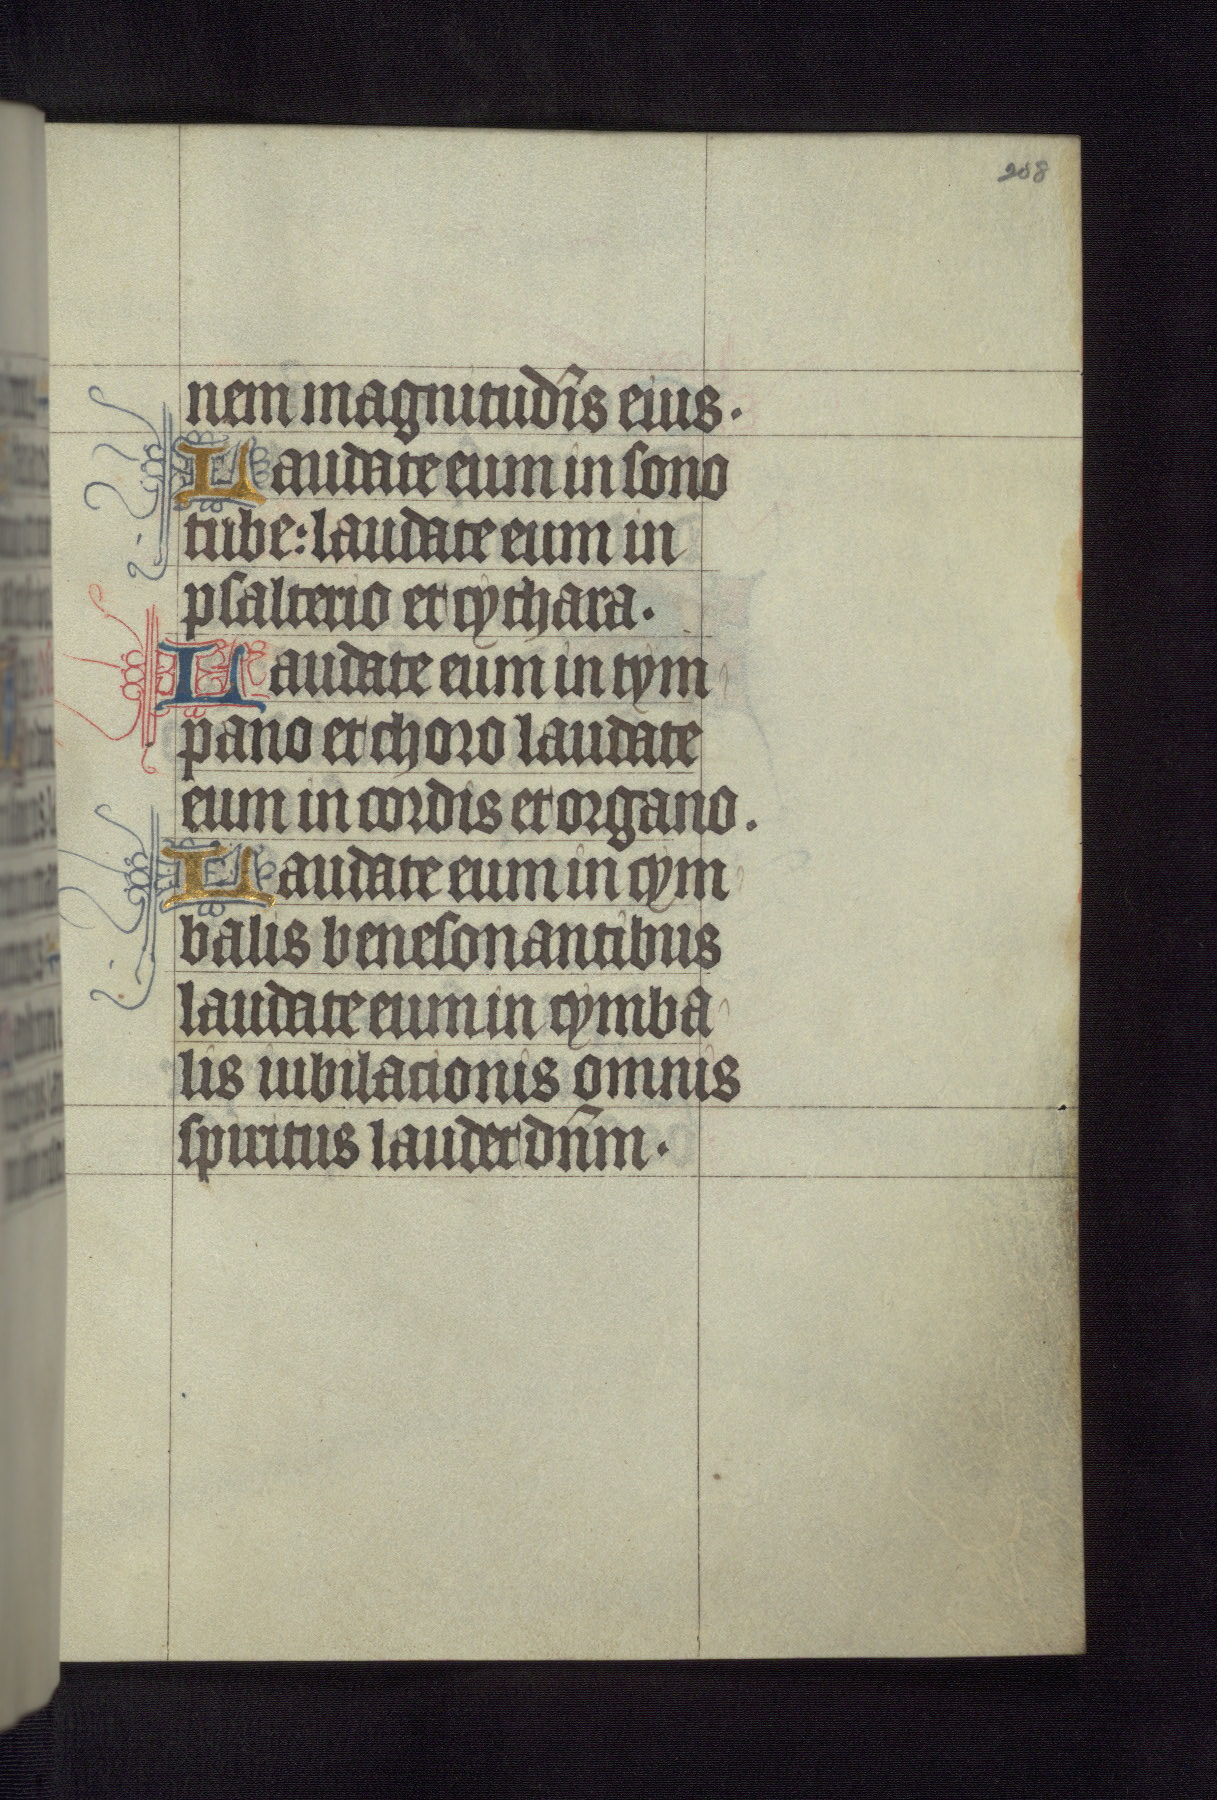 208
nem magnitudīs eius.
Laudate eum in sono
tube: laudate eum in
psalterio et cythara.
Laudate eum in tym
pano et choro laudate
eum in cordis et organo.
Laudate eum in cym
balis benesonantibus
laudate eum in cymba
lis iubilacionis omnis
spiritus laudet dn̄m.